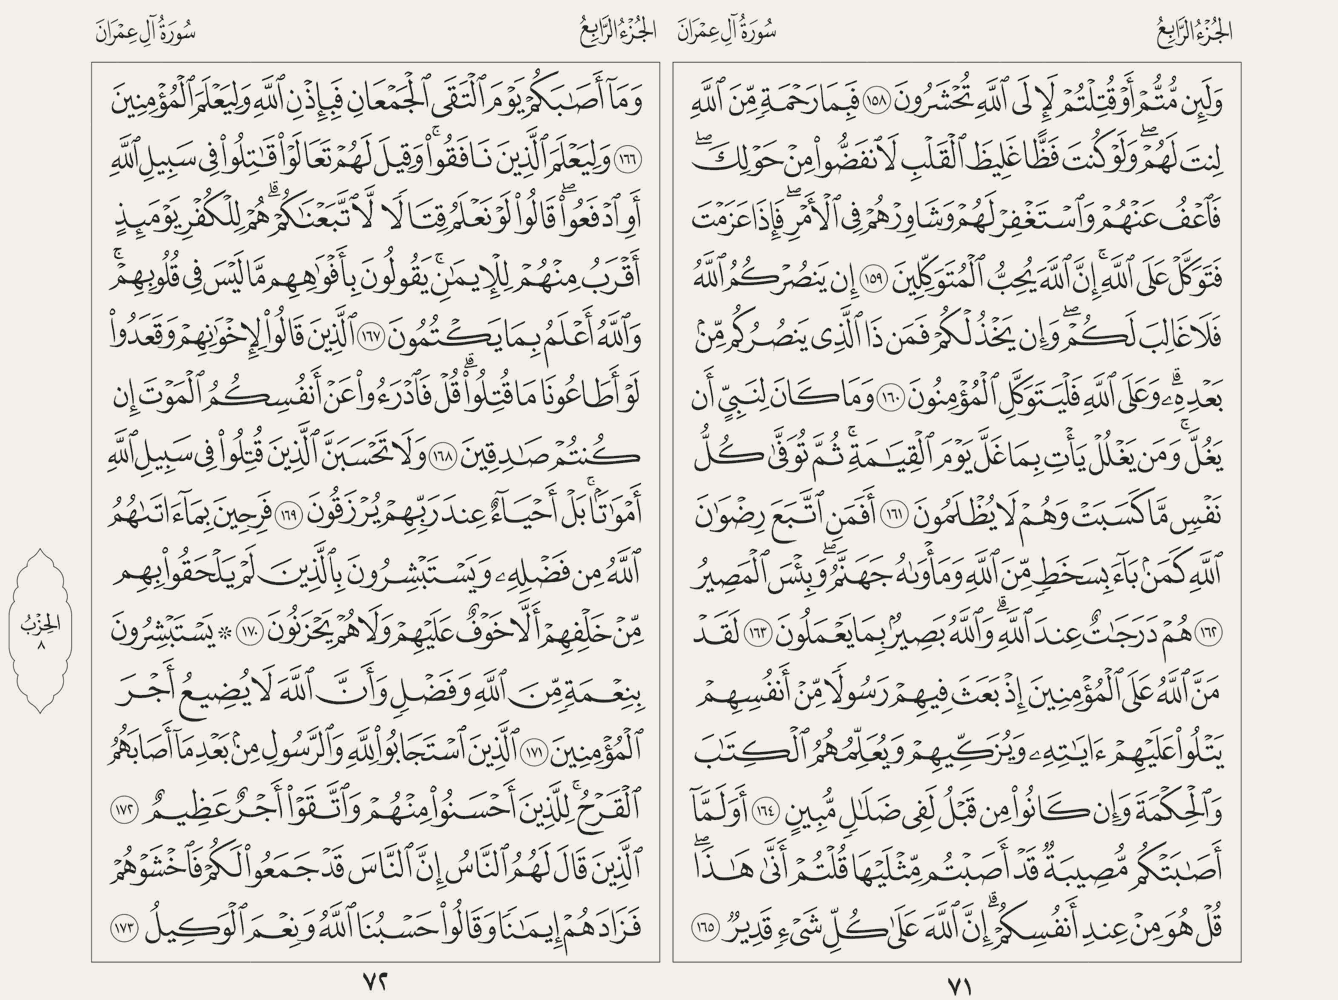 الجُزْءُ الرَّابِعُ
سُورَةُ آلِ عِمْرَانَ
وَلَئِن مُّتُّمْ أَوْ قُتِلْتُمْ لَإِلَى ٱللَّهِ تُحْشَرُونَ ١٥٨ فَبِمَا رَحْمَةٍ مِّنَ ٱللَّهِ
لِنتَ لَهُمْۖ وَلَوْ كُنتَ فَظًّا غَلِيظَ ٱلْقَلْبِ لَٱنفَضُّوا۟ مِنْ حَوْلِكَۖ
فَٱعْفُ عَنْهُمْ وَٱسْتَغْفِرْ لَهُمْ وَشَاوِرْهُمْ فِى ٱلْأَمْرِۖ فَإِذَا عَزَمْتَ
فَتَوَكَّلْ عَلَى ٱللَّهِۚ إِنَّ ٱللَّهَ يُحِبُّ ٱلْمُتَوَكِّلِينَ ١٥٩ إِن يَنصُرْكُمُ ٱللَّهُ
فَلَا غَالِبَ لَكُمْۖ وَإِن يَخْذُلْكُمْ فَمَن ذَا ٱلَّذِى يَنصُرُكُم مِّنۢ
بَعْدِهِۦۗ وَعَلَى ٱللَّهِ فَلْيَتَوَكَّلِ ٱلْمُؤْمِنُونَ ١٦٠ وَمَا كَانَ لِنَبِىٍّ أَن
يَغُلَّۚ وَمَن يَغْلُلْ يَأْتِ بِمَا غَلَّ يَوْمَ ٱلْقِيَـٰمَةِۚ ثُمَّ تُوَفَّىٰ كُلُّ
نَفْسٍ مَّا كَسَبَتْ وَهُمْ لَا يُظْلَمُونَ ١٦١ أَفَمَنِ ٱتَّبَعَ رِضْوَٰنَ
ٱللَّهِ كَمَنۢ بَآءَ بِسَخَطٍ مِّنَ ٱللَّهِ وَمَأْوَىٰهُ جَهَنَّمُۖ وَبِئْسَ ٱلْمَصِيرُ
١٦٢ هُمْ دَرَجَـٰتٌ عِندَ ٱللَّهِۗ وَٱللَّهُ بَصِيرٌۢ بِمَا يَعْمَلُونَ ١٦٣ لَقَدْ
مَنَّ ٱللَّهُ عَلَى ٱلْمُؤْمِنِينَ إِذْ بَعَثَ فِيهِمْ رَسُولًا مِّنْ أَنفُسِهِمْ
يَتْلُوا۟ عَلَيْهِمْ ءَايَـٰتِهِۦ وَيُزَكِّيهِمْ وَيُعَلِّمُهُمُ ٱلْكِتَـٰبَ
وَٱلْحِكْمَةَ وَإِن كَانُوا۟ مِن قَبْلُ لَفِى ضَلَـٰلٍ مُّبِينٍ ١٦٤ أَوَلَمَّآ
أَصَـٰبَتْكُم مُّصِيبَةٌ قَدْ أَصَبْتُم مِّثْلَيْهَا قُلْتُمْ أَنَّىٰ هَـٰذَاۖ
قُلْ هُوَ مِنْ عِندِ أَنفُسِكُمْۗ إِنَّ ٱللَّهَ عَلَىٰ كُلِّ شَىْءٍ قَدِيرٌ ١٦٥
٧١
الجُزْءُ الرَّابِعُ
سُورَةُ آلِ عِمْرَانَ
وَمَآ أَصَـٰبَكُمْ يَوْمَ ٱلْتَقَى ٱلْجَمْعَانِ فَبِإِذْنِ ٱللَّهِ وَلِيَعْلَمَ ٱلْمُؤْمِنِينَ
١٦٦ وَلِيَعْلَمَ ٱلَّذِينَ نَافَقُوا۟ۚ وَقِيلَ لَهُمْ تَعَالَوْا۟ قَـٰتِلُوا۟ فِى سَبِيلِ ٱللَّهِ
أَوِ ٱدْفَعُوا۟ۖ قَالُوا۟ لَوْ نَعْلَمُ قِتَالًا لَّٱتَّبَعْنَـٰكُمْۗ هُمْ لِلْكُفْرِ يَوْمَئِذٍ
أَقْرَبُ مِنْهُمْ لِلْإِيمَـٰنِۚ يَقُولُونَ بِأَفْوَٰهِهِم مَّا لَيْسَ فِى قُلُوبِهِمْۚ
وَٱللَّهُ أَعْلَمُ بِمَا يَكْتُمُونَ ١٦٧ ٱلَّذِينَ قَالُوا۟ لِإِخْوَٰنِهِمْ وَقَعَدُوا۟
لَوْ أَطَاعُونَا مَا قُتِلُوا۟ۗ قُلْ فَٱدْرَءُوا۟ عَنْ أَنفُسِكُمُ ٱلْمَوْتَ إِن
كُنتُمْ صَـٰدِقِينَ ١٦٨ وَلَا تَحْسَبَنَّ ٱلَّذِينَ قُتِلُوا۟ فِى سَبِيلِ ٱللَّهِ
أَمْوَٰتًۢاۚ بَلْ أَحْيَآءٌ عِندَ رَبِّهِمْ يُرْزَقُونَ ١٦٩ فَرِحِينَ بِمَآ ءَاتَىٰهُمُ
ٱللَّهُ مِن فَضْلِهِۦ وَيَسْتَبْشِرُونَ بِٱلَّذِينَ لَمْ يَلْحَقُوا۟ بِهِم
مِّنْ خَلْفِهِمْ أَلَّا خَوْفٌ عَلَيْهِمْ وَلَا هُمْ يَحْزَنُونَ ١٧٠ ۞ يَسْتَبْشِرُونَ
بِنِعْمَةٍ مِّنَ ٱللَّهِ وَفَضْلٍ وَأَنَّ ٱللَّهَ لَا يُضِيعُ أَجْرَ
ٱلْمُؤْمِنِينَ ١٧١ ٱلَّذِينَ ٱسْتَجَابُوا۟ لِلَّهِ وَٱلرَّسُولِ مِنۢ بَعْدِ مَآ أَصَابَهُمُ
ٱلْقَرْحُۚ لِلَّذِينَ أَحْسَنُوا۟ مِنْهُمْ وَٱتَّقَوْا۟ أَجْرٌ عَظِيمٌ ١٧٢
ٱلَّذِينَ قَالَ لَهُمُ ٱلنَّاسُ إِنَّ ٱلنَّاسَ قَدْ جَمَعُوا۟ لَكُمْ فَٱخْشَوْهُمْ
فَزَادَهُمْ إِيمَـٰنًا وَقَالُوا۟ حَسْبُنَا ٱللَّهُ وَنِعْمَ ٱلْوَكِيلُ ١٧٣
٧٢
الحِزْبُ
٨